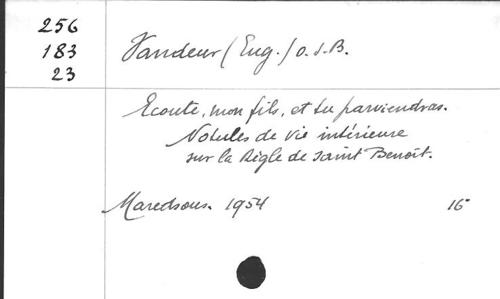 256
183
23
Vandeur (Eug.) O.S.B.
Ecoute, mon fils, et tu parviendras.
Notules de vie intérieure
sur la Règle de saint Benoît.
Maredsous. 1954 16°